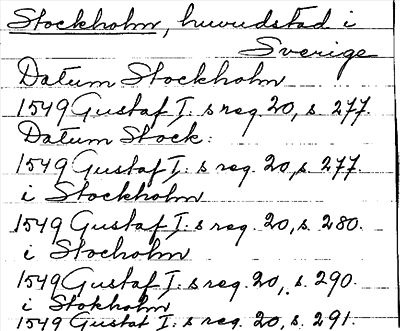 Stockholm, huvudstad i
Sverige
Datum Stockholm
1549 Gustaf I: s reg. 20, s. 277.
Datum Stock:
1549 Gustaf I: s reg. 20, s. 277.
i Stockholm
1549 Gustaf I: s reg. 20, s. 280.
i Stocholm
1549 Gustaf I: s reg. 20, s. 290.
i Stokholm
1549 Gustaf I: s reg. 20, s. 291.